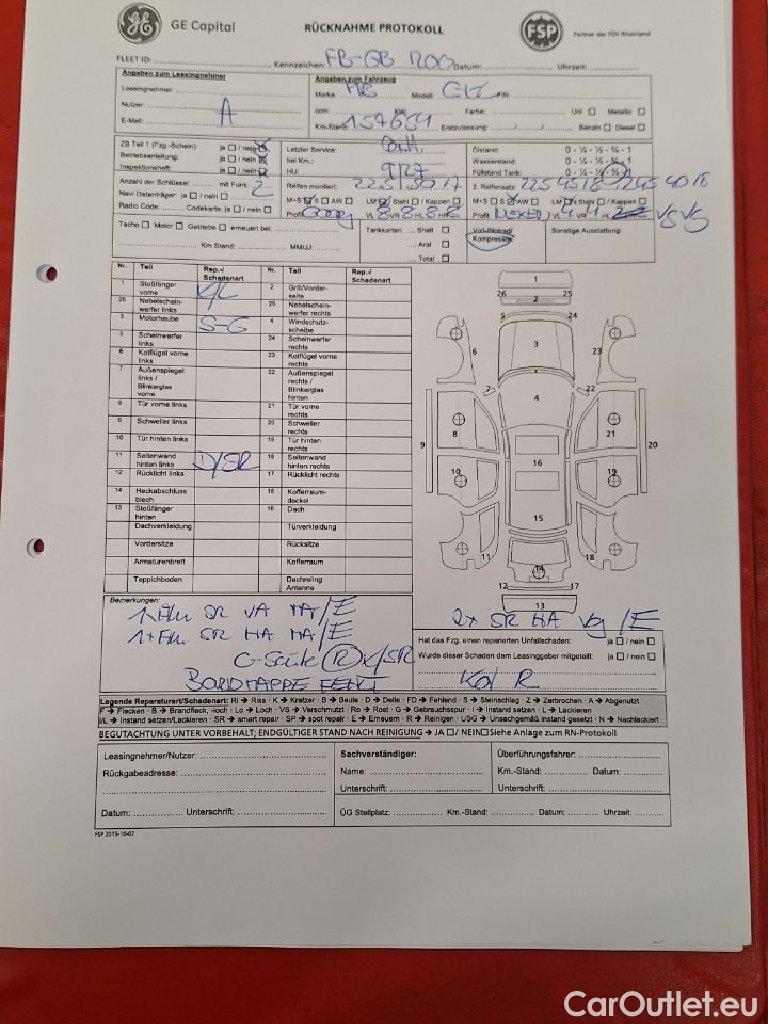 GE Capital
RÜCKNAHME PROTOKOLL
FSP
Partner des TÜV Rheinland
FLEET ID: Kennzeichen: Datum: Uhrzeit:
Angaben zum Leasingnehmer
Leasingnehmer:
Nutzer: A
E-Mail:
Angaben zum Fahrzeug
Marke MB Modell FIN:
KW: Farbe: Uni ☐ Metallic ☐
Km-Stand: 157654 Erstzulassung: Benzin ☐ Diesel ☐
ZB Teil 1 (Fzg.-Schein): ja ☐ / nein ☒
Betriebsanleitung: ja ☐ / nein ☒
Inspektionsheft: ja ☐ / nein ☒
Anzahl der Schlüssel: mit Funk: 2
Navi Datenträger: ja ☐ / nein ☐
Radio Code: Codekarte: ja ☐ / nein ☐
Letzter Service:
bei Km.:
HU: 9/27
Reifen montiert: 225/50 17
M+S S ☐ AW ☐ LM Stahl ☐ / Kappen ☐
Profil VL 8 VR 8 HL 8 HR 8
Ölstand: 0 - ¼ - ½ - ¾ - 1
Wasserstand: 0 - ¼ - ½ - ¾ - 1
Füllstand Tank: 0 - ¼ - ½ - ¾ - 1
2. Reifensatz: 225 45 18 / 245 40 18
M+S ☐ S AW ☐ LM Stahl ☐ / Kappen ☐
Profil VL 4 VR 4
Tacho ☐ Motor ☐ Getriebe ☐ erneuert bei
Km Stand: MM/JJ:
Tankkarten: Shell ☐
Aral ☐
Total ☐
Kompressor
Sonstige Ausstattung:
Nr. Teil Rep.-/ Schadenart Nr. Teil Rep.-/ Schadenart
1 Stoßfänger vorne K/L 2 Grill/Vorderseite
26 Nebelscheinwerfer links 25 Nebelscheinwerfer rechts
3 Motorhaube S-G 4 Windschutzscheibe
5 Scheinwerfer links 24 Scheinwerfer rechts
6 Kotflügel vorne links 23 Kotflügel vorne rechts
7 Außenspiegel links / Blinkerglas vorne 22 Außenspiegel rechts / Blinkerglas hinten
8 Tür vorne links 21 Tür vorne rechts
9 Schweller links 20 Schweller rechts
10 Tür hinten links 19 Tür hinten rechts
11 Seitenwand hinten links D/SR 18 Seitenwand hinten rechts
12 Rücklicht links 17 Rücklicht rechts
14 Heckabschlussblech 15 Kofferraumdeckel
13 Stoßfänger hinten 16 Dach
Dachverkleidung Türverkleidung
Vordersitze Rücksitze
Armaturenbrett Kofferraum
Teppichboden Dachreling Antenne
1
26 2 25
5 24
6 3 23
7 22
4
9 8 21 20
10 16 19
15
11 18
14
12 17
13
Bemerkungen:
SR VA /E
SR HA /E
C-Säule (R) K/SR
BORDMAPPE FEHLT
2x SR HA /E
Hat das Fzg. einen reparierten Unfallschaden: ja ☐ / nein ☐
Wurde dieser Schaden dem Leasinggeber mitgeteilt: ja ☐ / nein ☐
R
Legende Reparaturart/Schadenart: RI → Riss · K → Kratzer · B → Beule · D → Delle · FD → Fehlend · S → Steinschlag · Z → Zerbrochen · A → Abgenutzt
F → Flecken · B → Brandfleck, -loch · Lo → Loch · VS → Verschmutzt · Ro → Rost · G → Gebrauchsspur · I → Instand setzen · L → Lackieren
I/L → Instand setzen/Lackieren · SR → smart repair · SP → spot repair · E → Erneuern · R → Reinigen · USG → Unsachgemäß instand gesetzt · N → Nachlackiert
BEGUTACHTUNG UNTER VORBEHALT; ENDGÜLTIGER STAND NACH REINIGUNG → JA ☐ / NEIN ☐ Siehe Anlage zum RN-Protokoll
Leasingnehmer/Nutzer:
Rückgabeadresse:
Datum: Unterschrift:
Sachverständiger:
Name:
Unterschrift:
Überführungsfahrer:
Km.-Stand: Datum:
Unterschrift:
ÜG Stellplatz: Km.-Stand: Datum: Uhrzeit:
FSP 2015-10-07
CarOutlet.eu